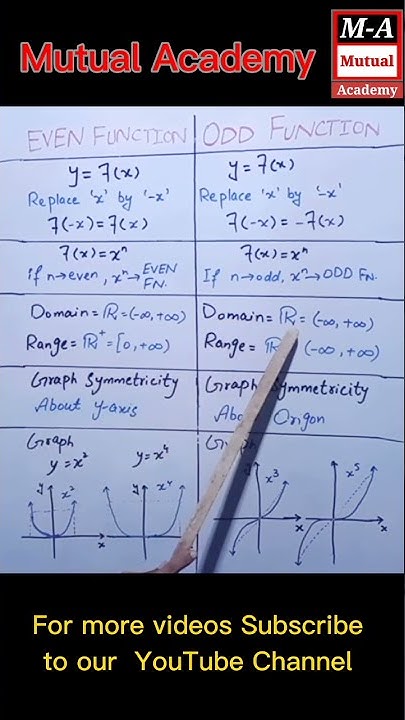 Mutual Academy
M-A
Mutual
Academy
EVEN FUNCTION
ODD FUNCTION
y=f(x)
Replace 'x' by '-x'
f(-x)=f(x)
y=f(x)
Replace 'x' by '-x'
f(-x)=-f(x)
f(x)=xⁿ
if n→even, xⁿ→EVEN
FN.
f(x)=xⁿ
If n→odd, xⁿ→ODD FN.
Domain=ℝ=(-∞,+∞)
Range=ℝ⁺=[0,+∞)
Domain=ℝ=(-∞,+∞)
Range=ℝ (-∞,+∞)
Graph Symmetricity
About y-axis
Graph Symmetricity
Origon
Graph
y=x² y=x⁴
y x² y x⁴
x x
Graph
y x³ y x⁵
x x
For more videos Subscribe
to our YouTube Channel